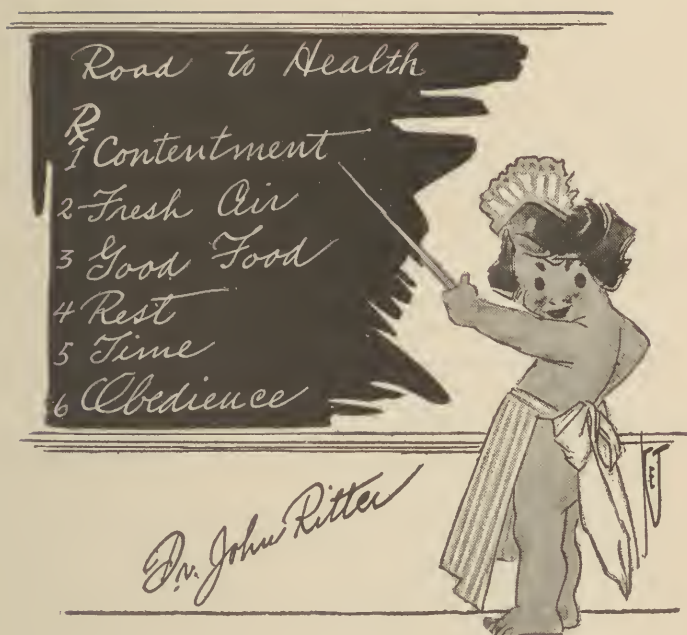 Road to Health
Rx
1 Contentment
2-Fresh Air
3 Good Food
4 Rest
5 Time
6 Obedience
Dr. John Ritter